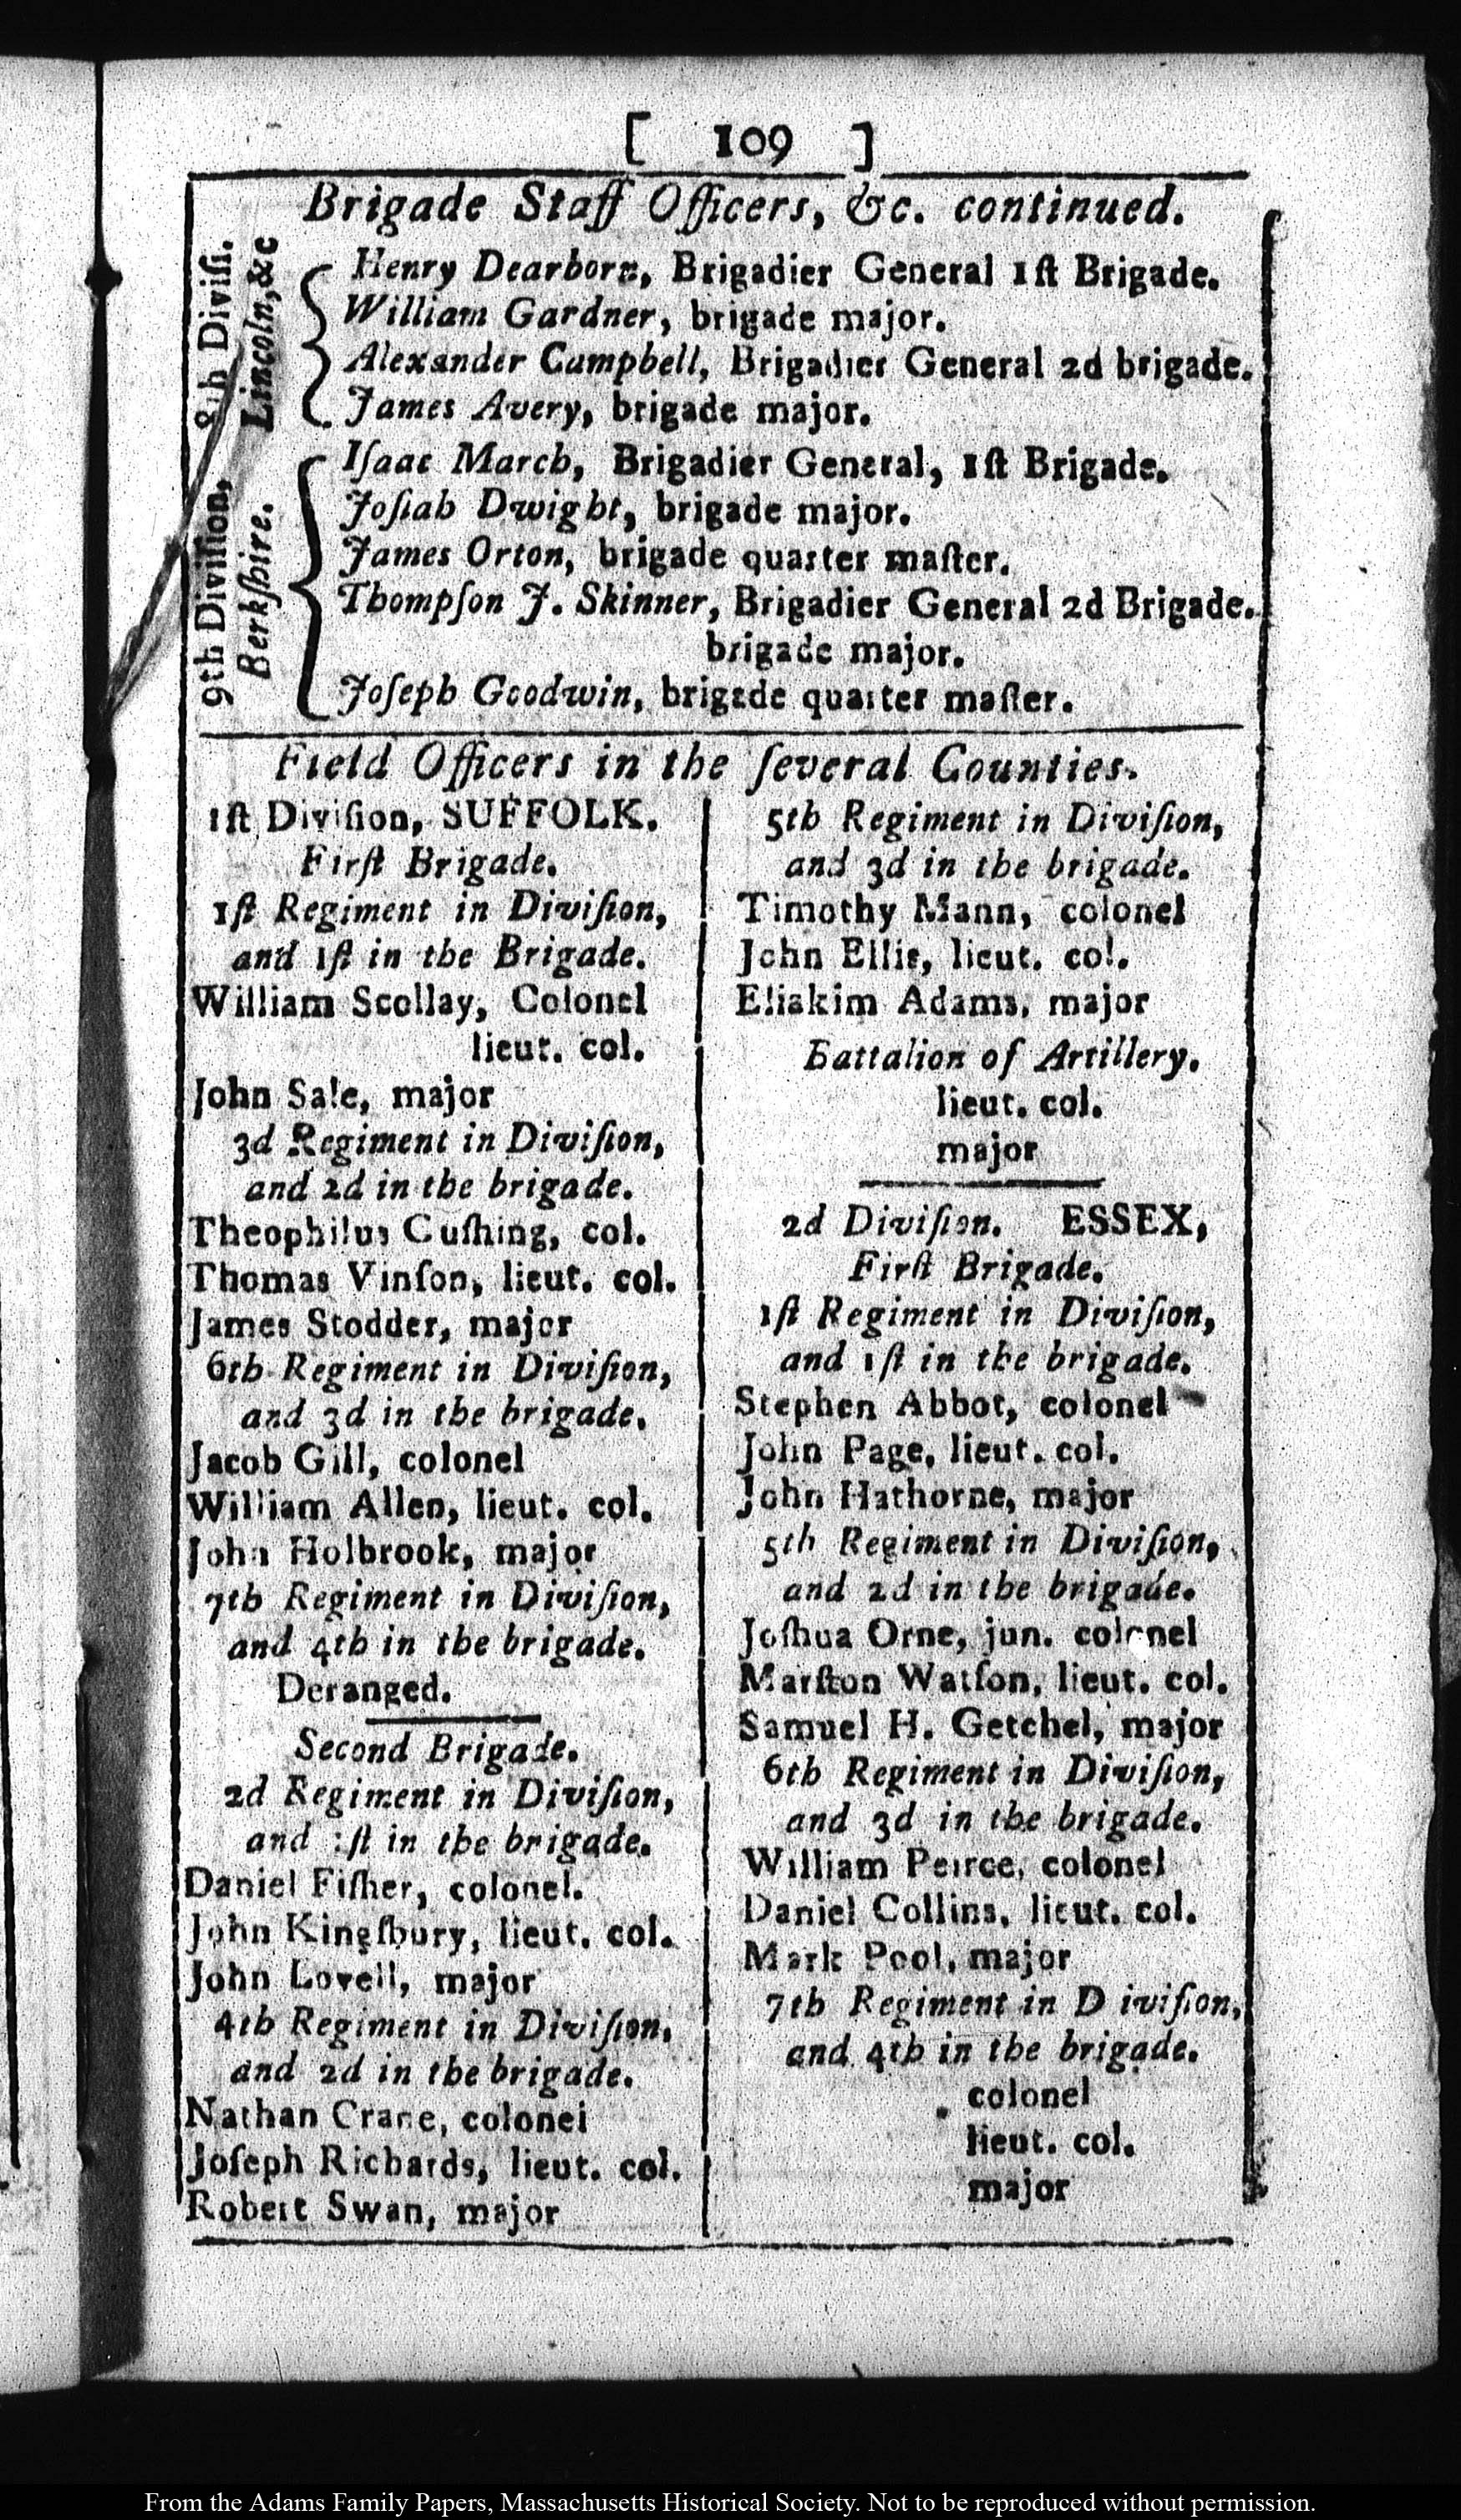 [ 109 ]
Brigade Staff Officers, &c. continued.
8th Diviſi.
Lincoln, &c
Henry Dearborn, Brigadier General 1ſt Brigade.
William Gardner, brigade major.
Alexander Campbell, Brigadier General 2d brigade.
James Avery, brigade major.
9th Diviſion,
Berkſhire.
Iſaac March, Brigadier General, 1ſt Brigade.
Joſiah Dwight, brigade major.
James Orton, brigade quarter maſter.
Thompſon J. Skinner, Brigadier General 2d Brigade.
brigade major.
Joſeph Goodwin, brigade quarter maſter.
Field Officers in the ſeveral Counties.
1ſt Diviſion, SUFFOLK.
Firſt Brigade.
1ſt Regiment in Diviſion,
and 1ſt in the Brigade.
William Scollay, Colonel
lieut. col.
John Sale, major
3d Regiment in Diviſion,
and 2d in the brigade.
Theophilus Cuſhing, col.
Thomas Vinſon, lieut. col.
James Stodder, major
6th Regiment in Diviſion,
and 3d in the brigade.
Jacob Gill, colonel
William Allen, lieut. col.
John Holbrook, major
7th Regiment in Diviſion,
and 4th in the brigade.
Deranged.
Second Brigade.
2d Regiment in Diviſion,
and 1ſt in the brigade.
Daniel Fiſher, colonel.
John Kingſbury, lieut. col.
John Lovell, major
4th Regiment in Diviſion,
and 2d in the brigade.
Nathan Crane, colonel
Joſeph Richards, lieut. col.
Robert Swan, major
5th Regiment in Diviſion,
and 3d in the brigade.
Timothy Mann, colonel
John Ellis, lieut. col.
Eliakim Adams, major
Battalion of Artillery.
lieut. col.
major
2d Diviſion. ESSEX,
Firſt Brigade.
1ſt Regiment in Diviſion,
and 1ſt in the brigade.
Stephen Abbot, colonel
John Page, lieut. col.
John Hathorne, major
5th Regiment in Diviſion,
and 2d in the brigade.
Joſhua Orne, jun. colonel
Marſton Watſon, lieut. col.
Samuel H. Getchel, major
6th Regiment in Diviſion,
and 3d in the brigade.
William Peirce, colonel
Daniel Collins, lieut. col.
Mark Pool, major
7th Regiment in D iviſion,
and 4th in the brigade.
colonel
lieut. col.
major
From the Adams Family Papers, Massachusetts Historical Society. Not to be reproduced without permission.